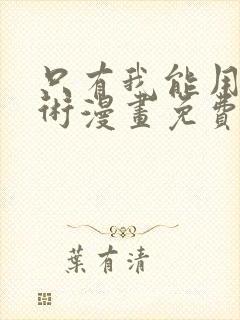 只有我能用
術漫畫免費
葉有清